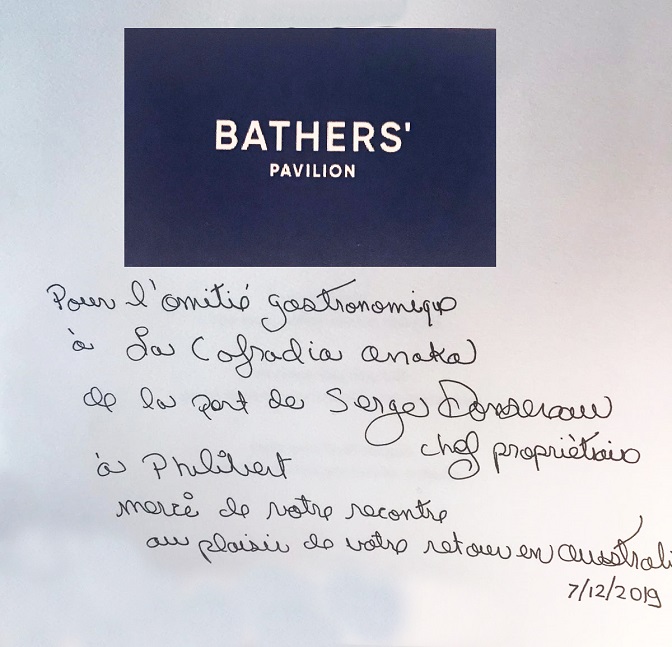 BATHERS'
PAVILION
Pour l'amitié gastronomique
à La Cofradia anaka
de la part de Serge Dansereau
chef propriétaire
à Philibert
merci de votre recontre
au plaisir de votre retour en australi
7/12/2019